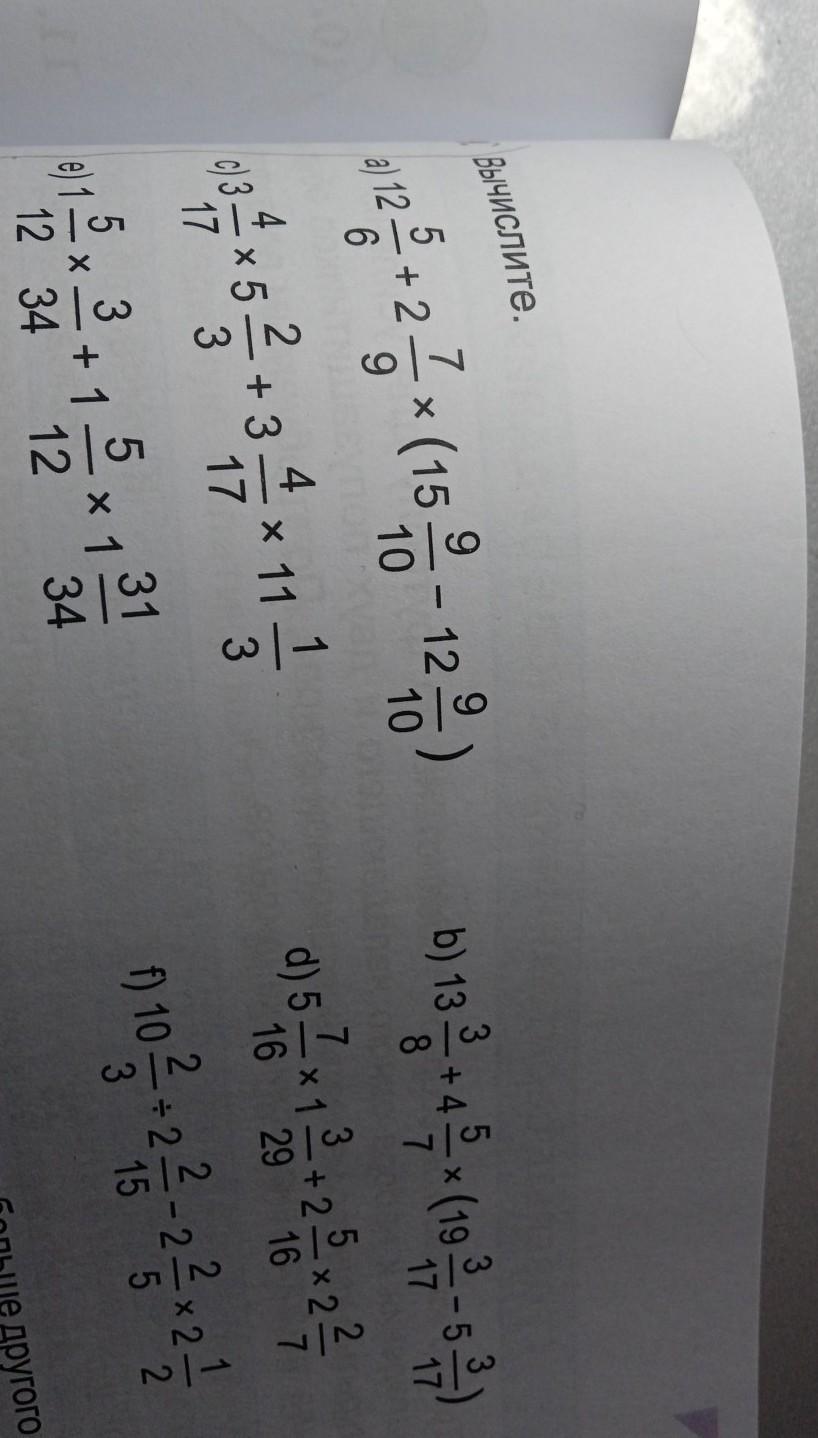 Вычислите.
a) 12 5/6 + 2 7/9 × (15 9/10 − 12 9/10)
b) 13 3/8 + 4 5/7 × (19 3/17 − 5 3/17)
c) 3 4/17 × 5 2/3 + 3 4/17 × 11 1/3
d) 5 7/16 × 1 3/29 + 2 5/16 × 2 2/7
e) 1 5/12 × 3/34 + 1 5/12 × 1 31/34
f) 10 2/3 ÷ 2 2/15 − 2 2/5 × 2 1/2
больше другого